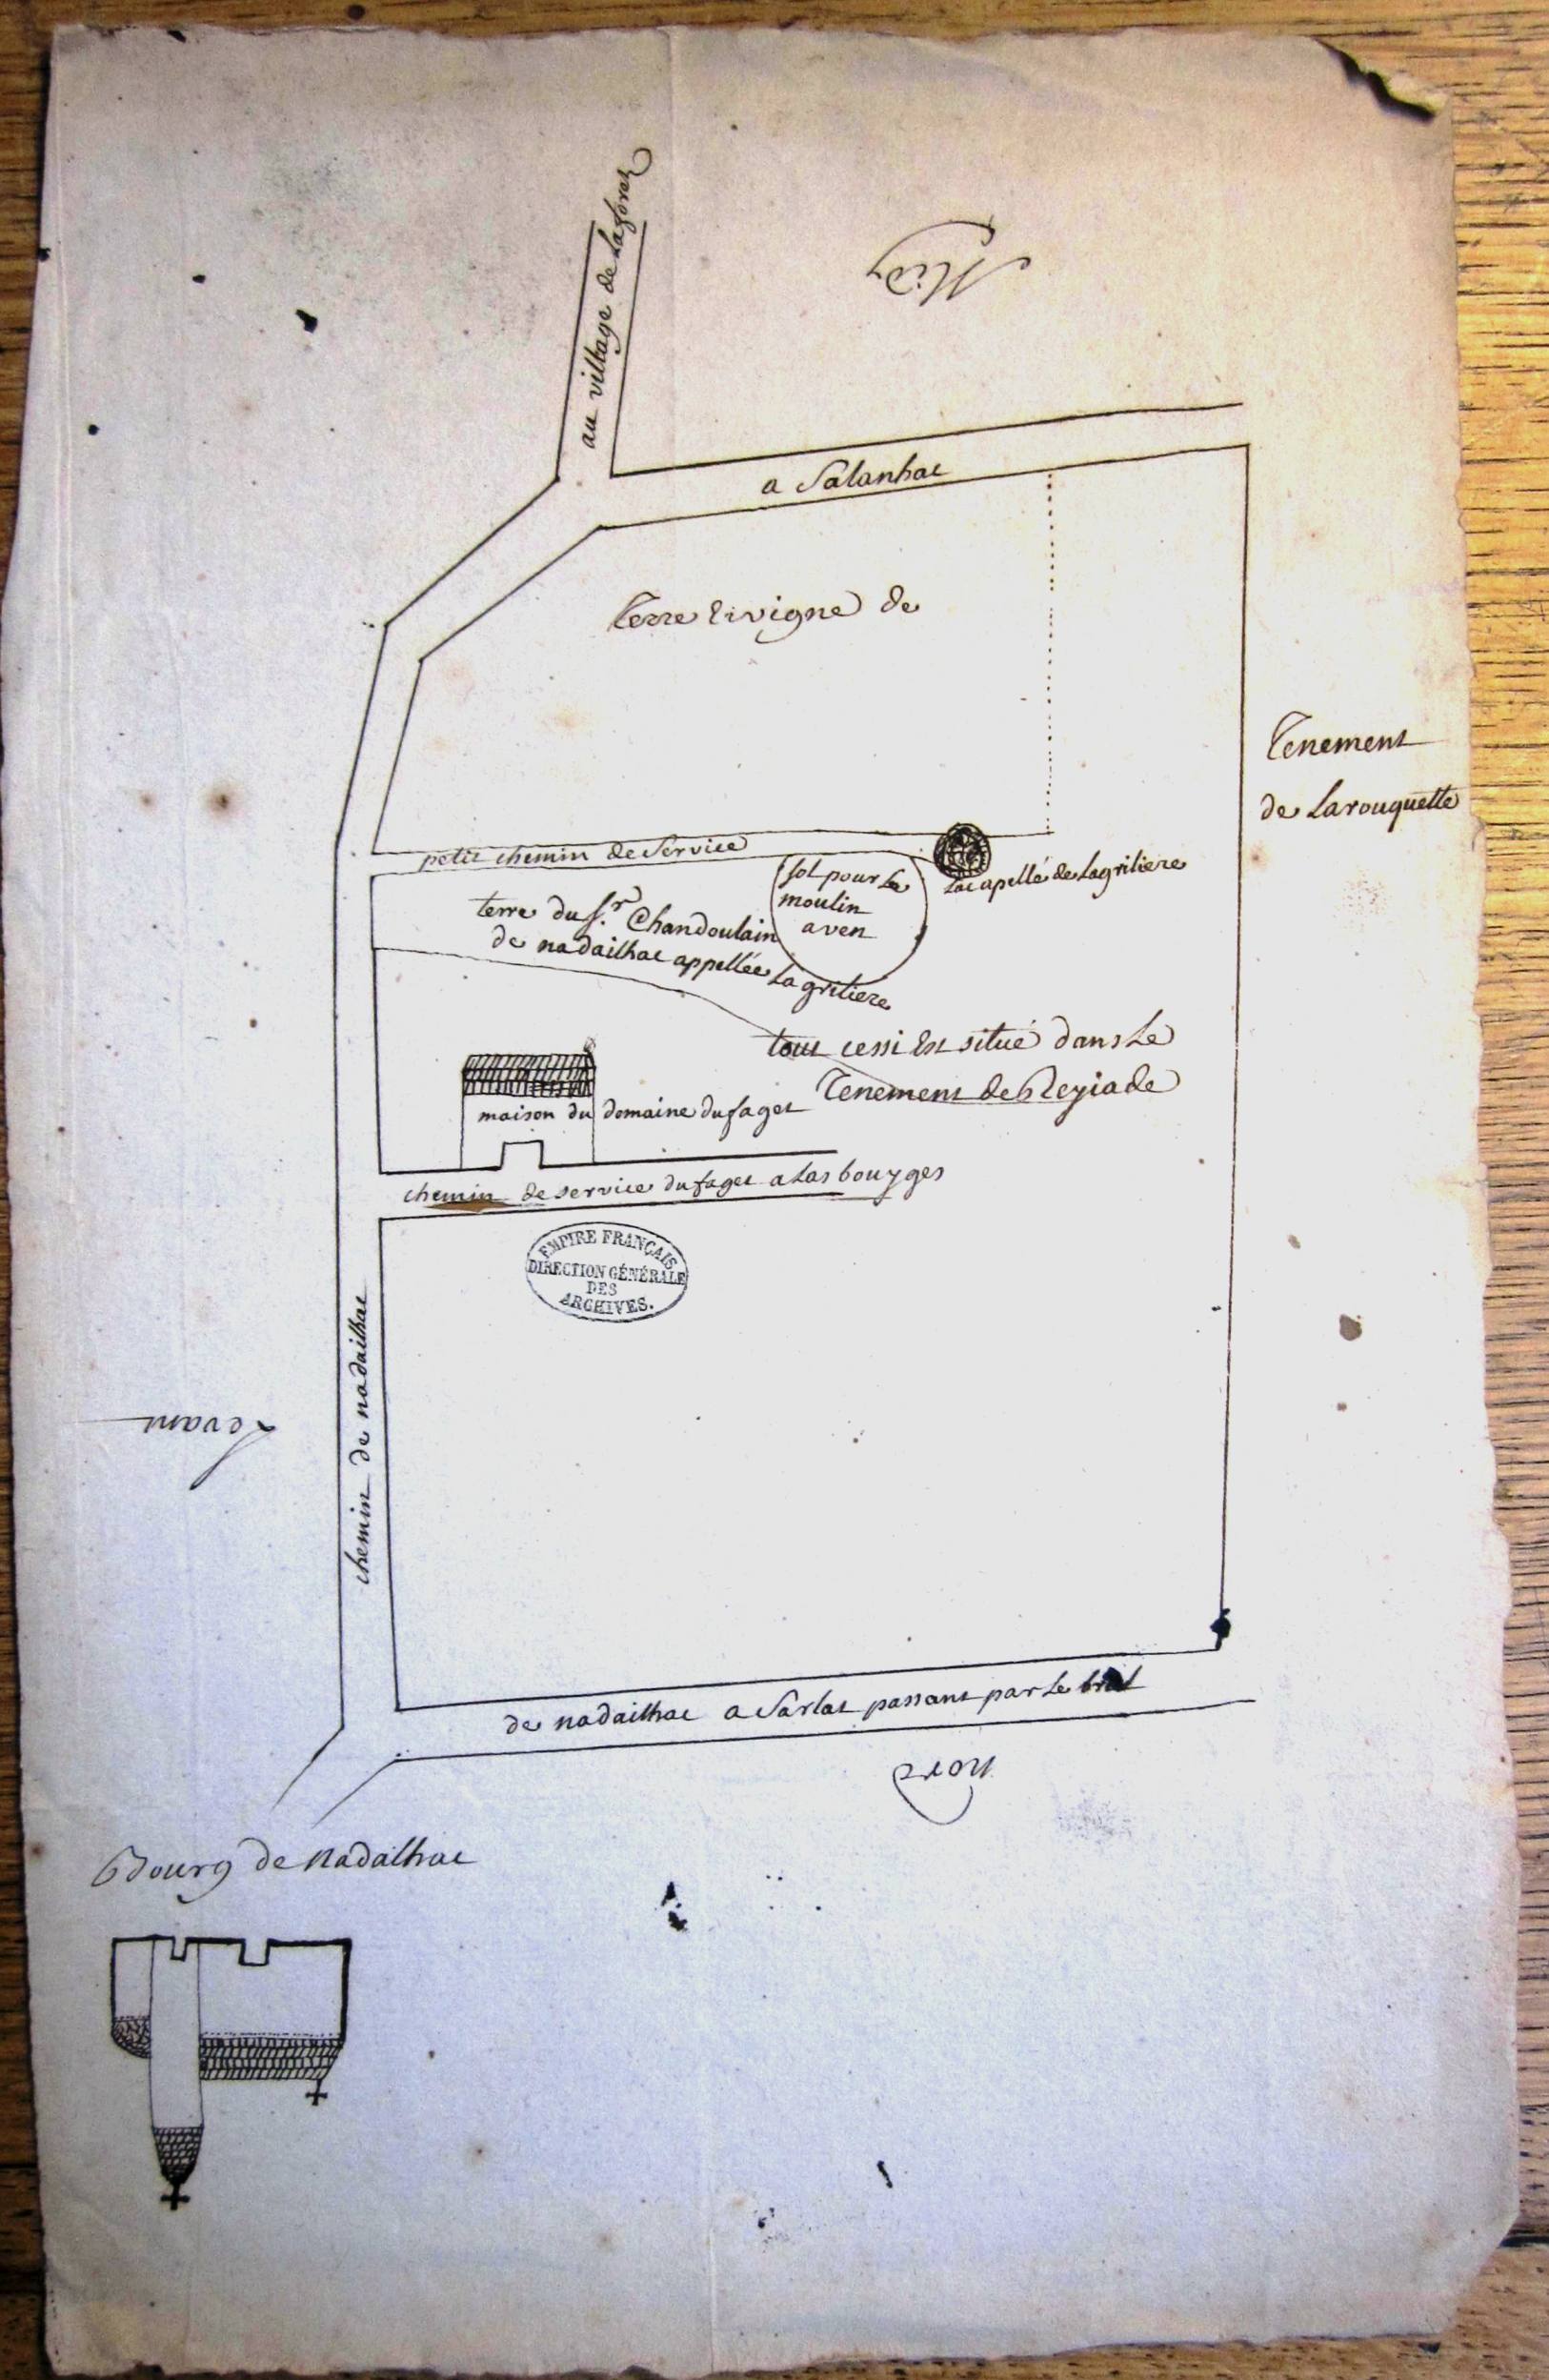 au village de Laforet
Midy
a Salanhac
Terre & vigne de
Tenement
de Larouquette
petit chemin de Service
Lac apellé de Lagriliere
sol pour Le
moulin
a ven
terre du S.r Chandoulain
de nadailhac appellée Lagriliere
tout cessi Est situé dans Le
Tenement de
maison du domaine dufaget
chemin de service dufaget a Las bouyges
EMPIRE FRANÇAIS
DIRECTION GÉNÉRALE
DES
ARCHIVES.
chemin de nadailhac
Levant
de nadailhac a Sarlat passant par Le
nord
Bourg de Nadalhac